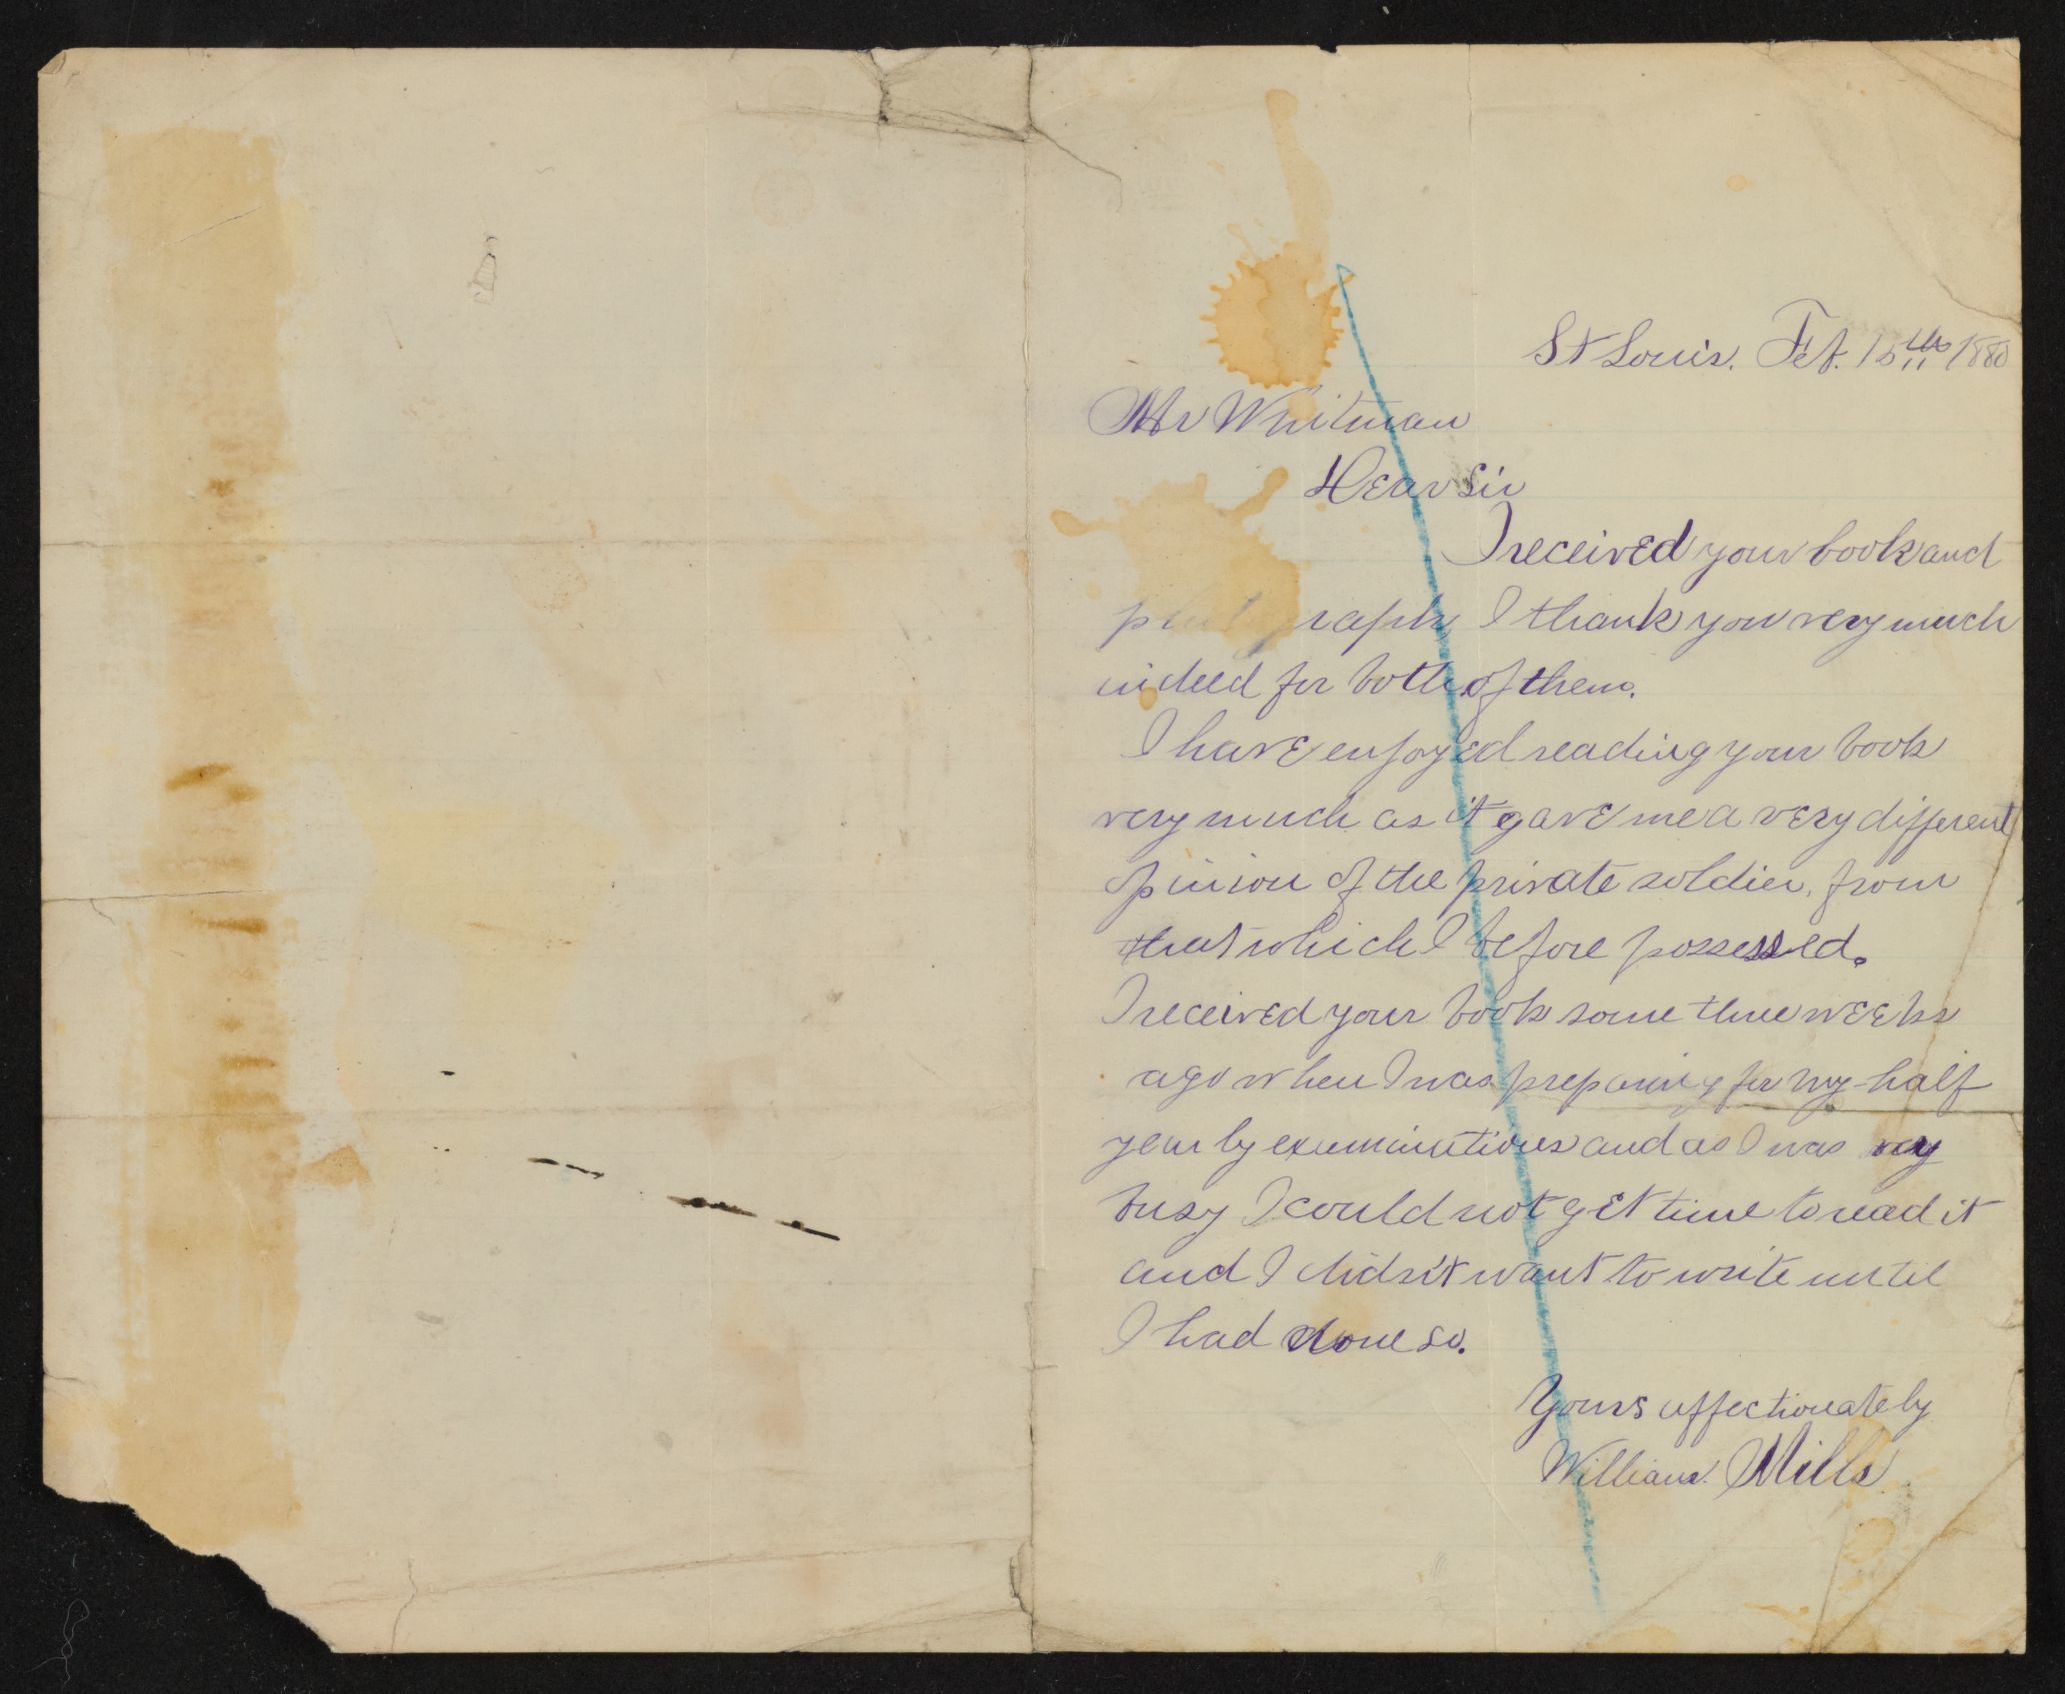 St Louis. Feb. 15th 1880
Mr Whitman
Dear Sir
I received your book and
photograph I thank you very much
indeed for both of them.
I have enjoyed reading your book
very much as it gave me a very different
opinion of the private soldier, from
that which I before possessed.
I received your book some three weeks
ago when I was preparing for my half
yearly examinations and as I was very
busy I could not get time to read it
and I didn't want to write until
I had done so.
Yours affectionately
William Mills